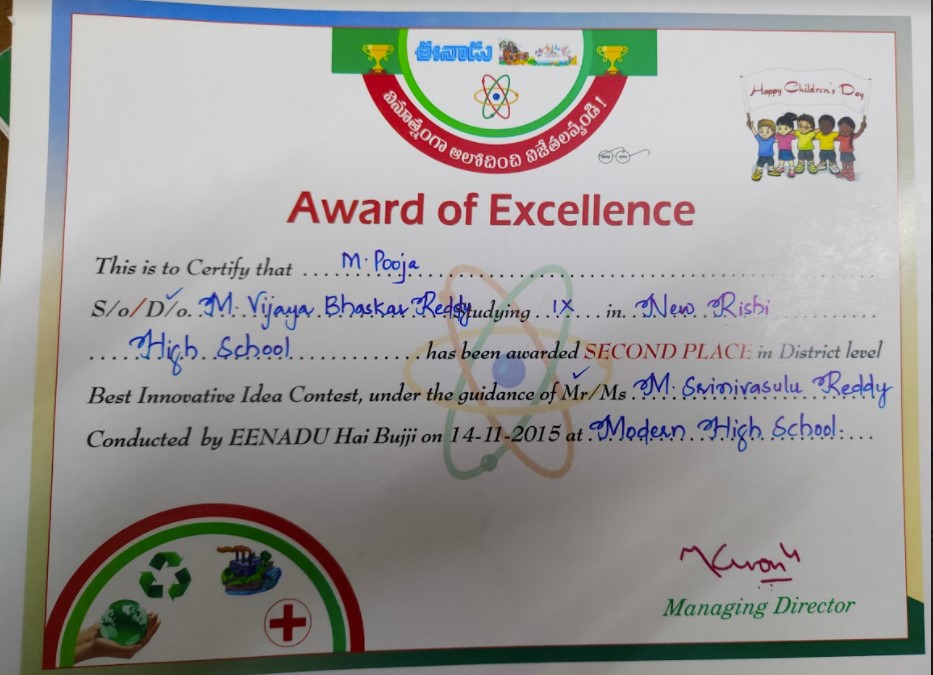 ఈనాడు
వినూత్నంగా ఆలోచించి విజేతలవ్వండి!
Happy Children's Day
Award of Excellence
This is to Certify that ... M. Pooja ...
S/o/D/o. M. Vijaya Bhaskar Reddy Studying . IX ... in. New Rishi
.... High School ............. has been awarded SECOND PLACE in District level
Best Innovative Idea Contest, under the guidance of Mr/Ms . M. Srinivasulu Reddy
Conducted by EENADU Hai Bujji on 14-11-2015 at . Modern High School. ...
Managing Director